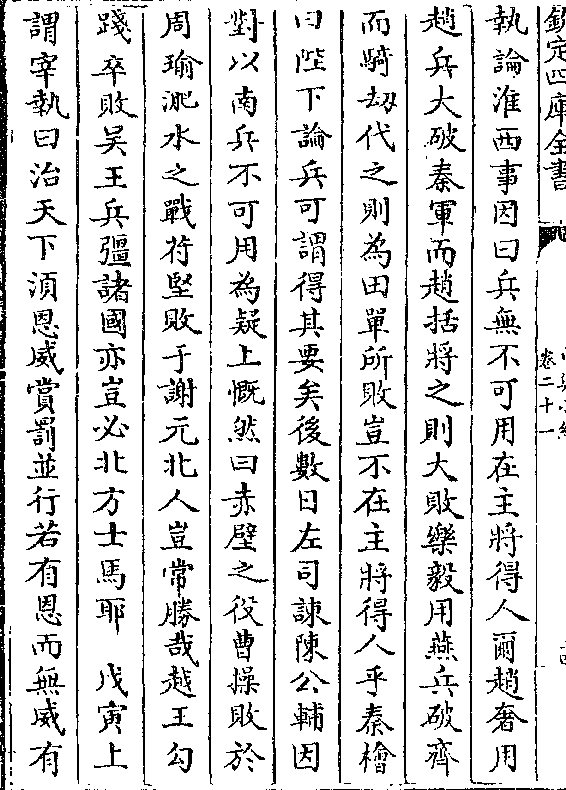 欽定四庫全書
卷二十一
執論淮西事因曰兵無不可用在主將得人爾趙奢用
趙兵大破秦軍而趙括將之則大敗樂毅用燕兵破齊
而騎劫代之則為田單所敗豈不在主將得人乎秦檜
曰陛下論兵可謂得其要矣後數日左司諫陳公輔因
對以南兵不可用為疑上慨然曰赤壁之役曹操敗於
周瑜淝水之戰苻堅敗于謝元北人豈常勝哉越王勾
踐卒敗吳王兵彊諸國亦豈必北方士馬耶　戊寅上
謂宰執曰治天下須恩威賞罰並行若有恩而無威有